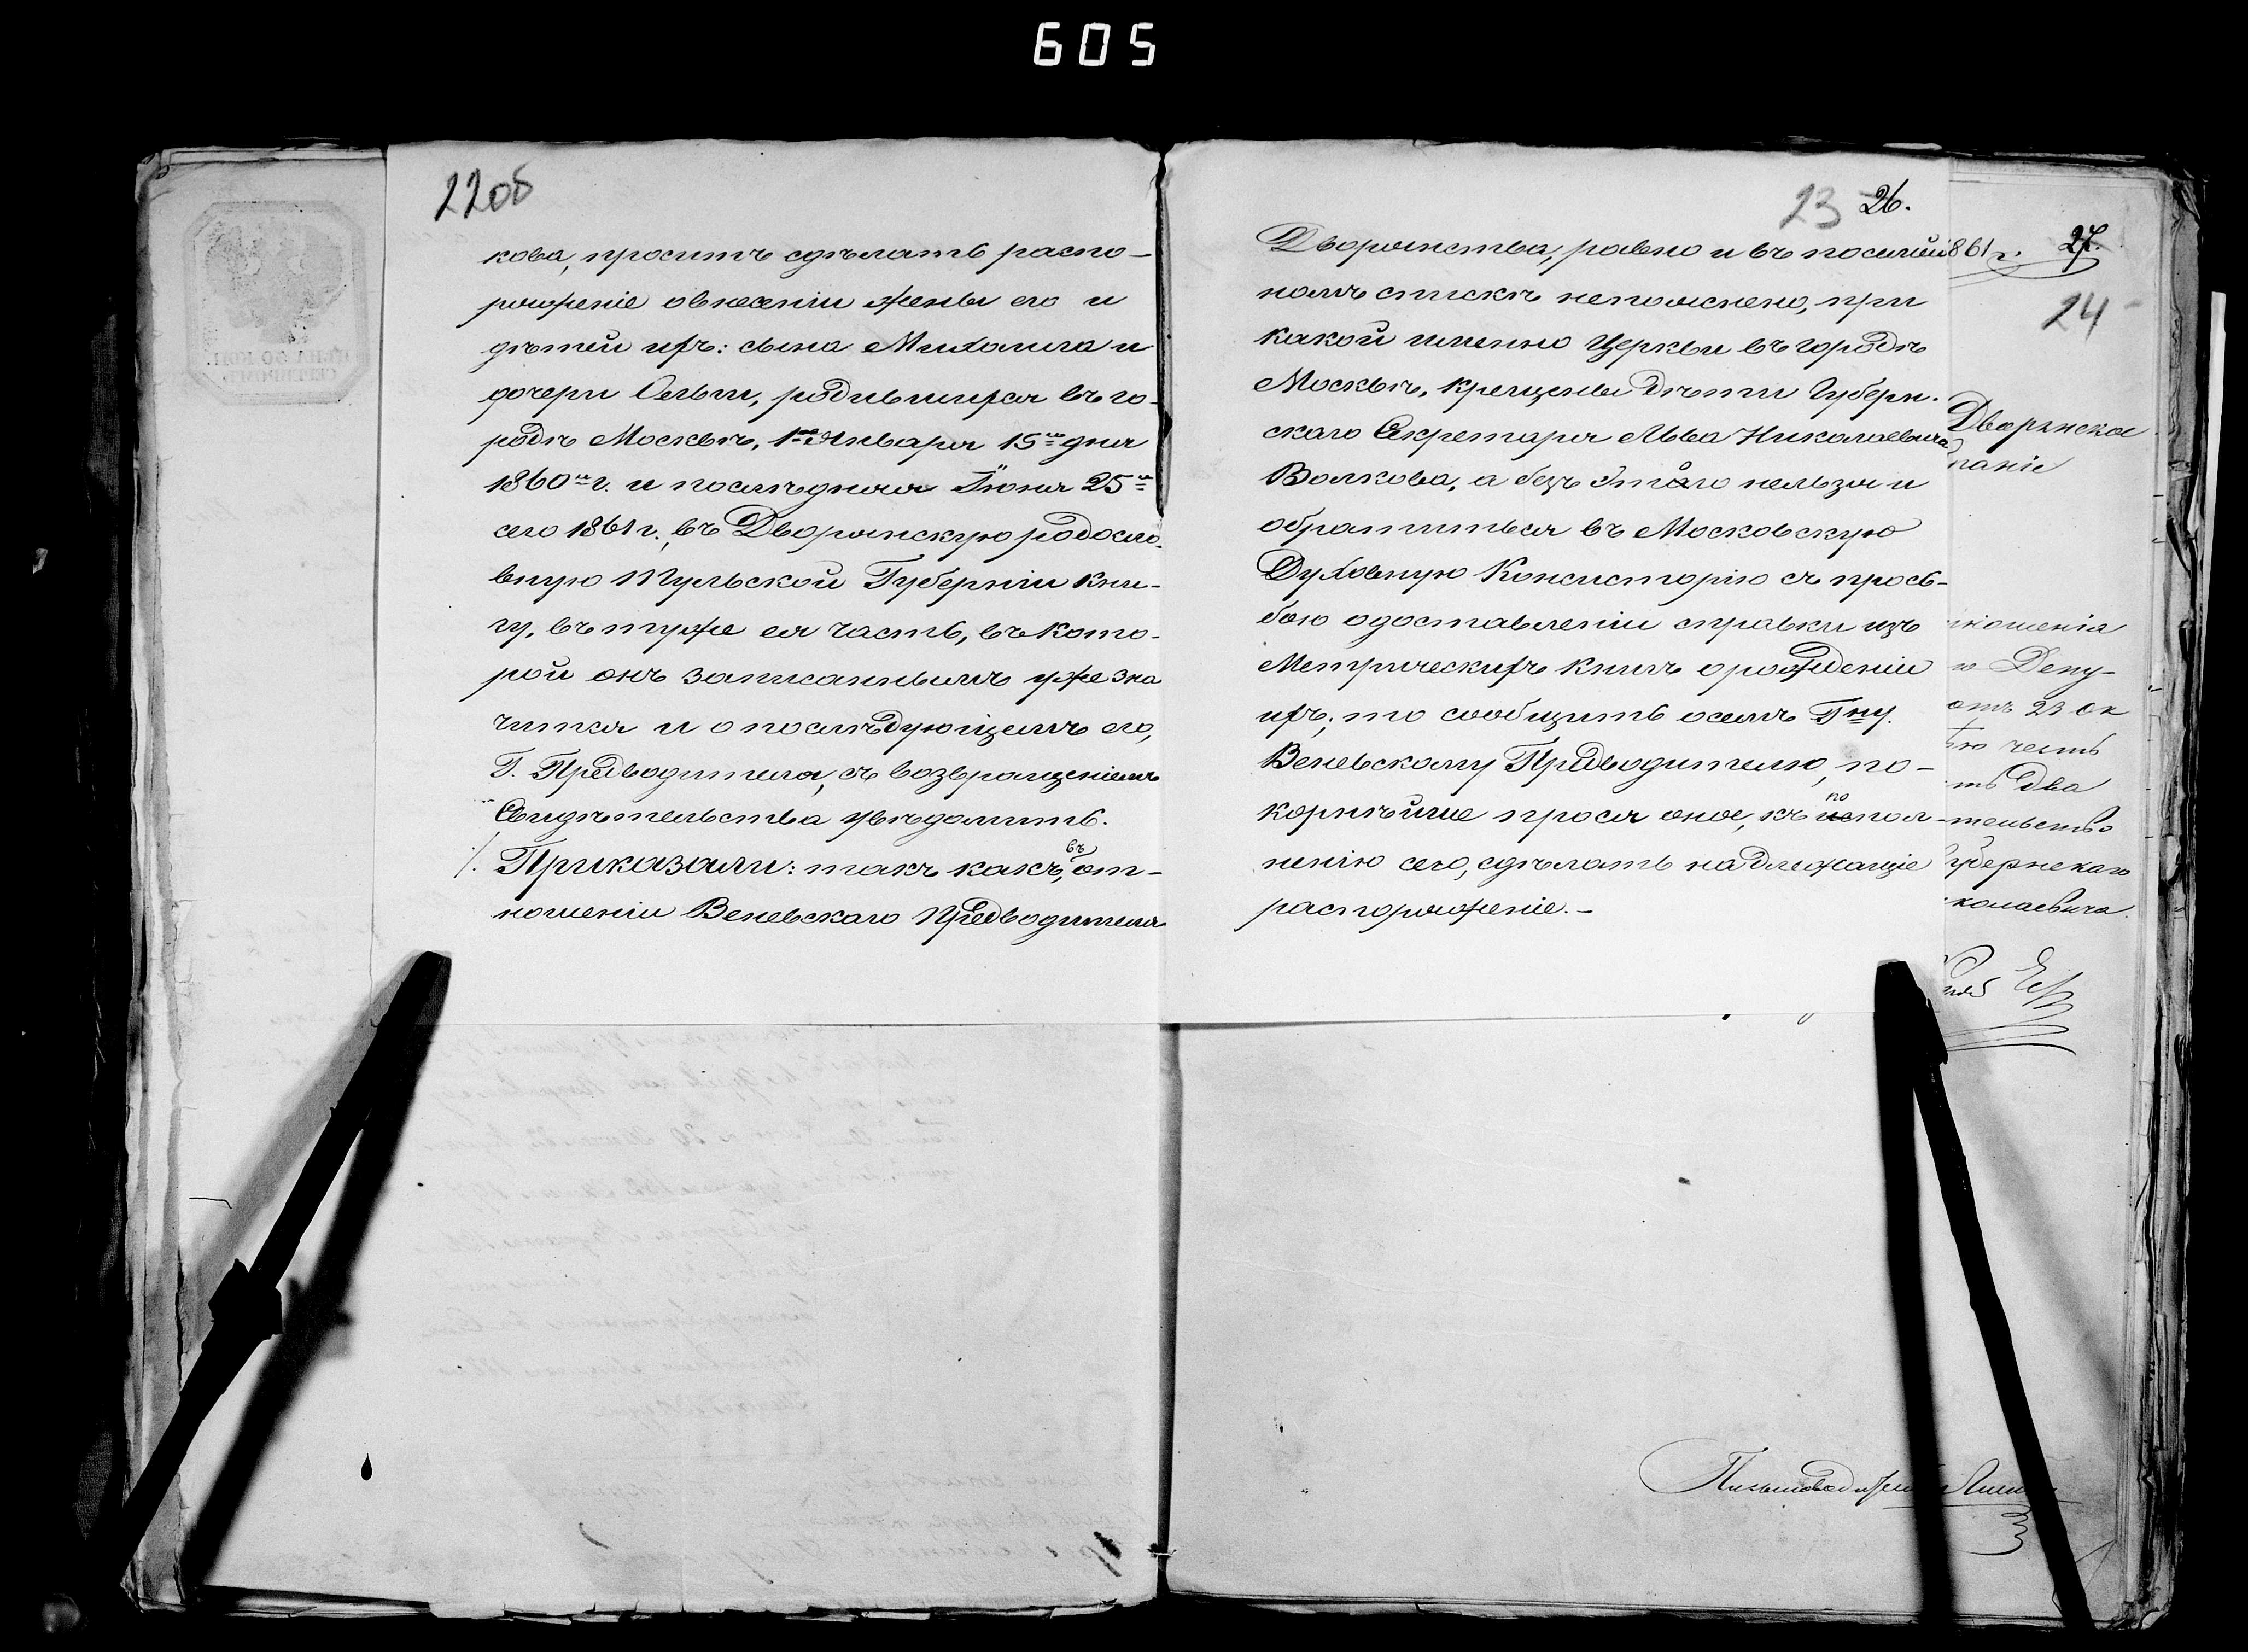 605
22об
кова, проситъ сдѣлать распо-
ряженіе овнесеніи жены его и
дѣтей ихъ: сына Михаила и
дочери Ольги, родившихся въ го-
родѣ Москвѣ, 1й Января 15го дня
1860го г. и послѣдняя Іюня 25го
сего 1861 г., въ Дворянскую родосло-
вную Тульской Губерніи кни-
гу, въ туже ея часть, въ кото-
рой онъ записаннымъ уже зна
чится и о послѣдующемъ его,
Г. Предводителя, съ возвращеніемъ
Свидѣтельства увѣдомить.
Приказали: такъ какъ, въ от-
ношеніи Веневскаго Предводителя
23 26.
Дворянства, равно и въ послуж
номъ спискѣ непояснено, при
какой именно Церкви въ городѣ
Москвѣ, крещены дѣти Губерн.
скаго Секретаря Льва Николаевича
Волкова, а безъ этого нельзя и
обратиться въ Московскую
Духовную Консисторію съ прось-
бою одоставленіи справки изъ
Метрическихъ книгъ орожденіи
ихъ; то сообщить осемъ Гну.
Веневскому Предводителю, по-
корнѣйше прося оное, къ испол-
по
ненію сего, сдѣлать надлежащіе
распоряженіе.-
861 г. 27.
24
Дворянское
раніе
ношенія
Депу-
отъ 23 Ок
ю честь
ть два
тельство
Губернскаго
колаевича.
Письмоводитель